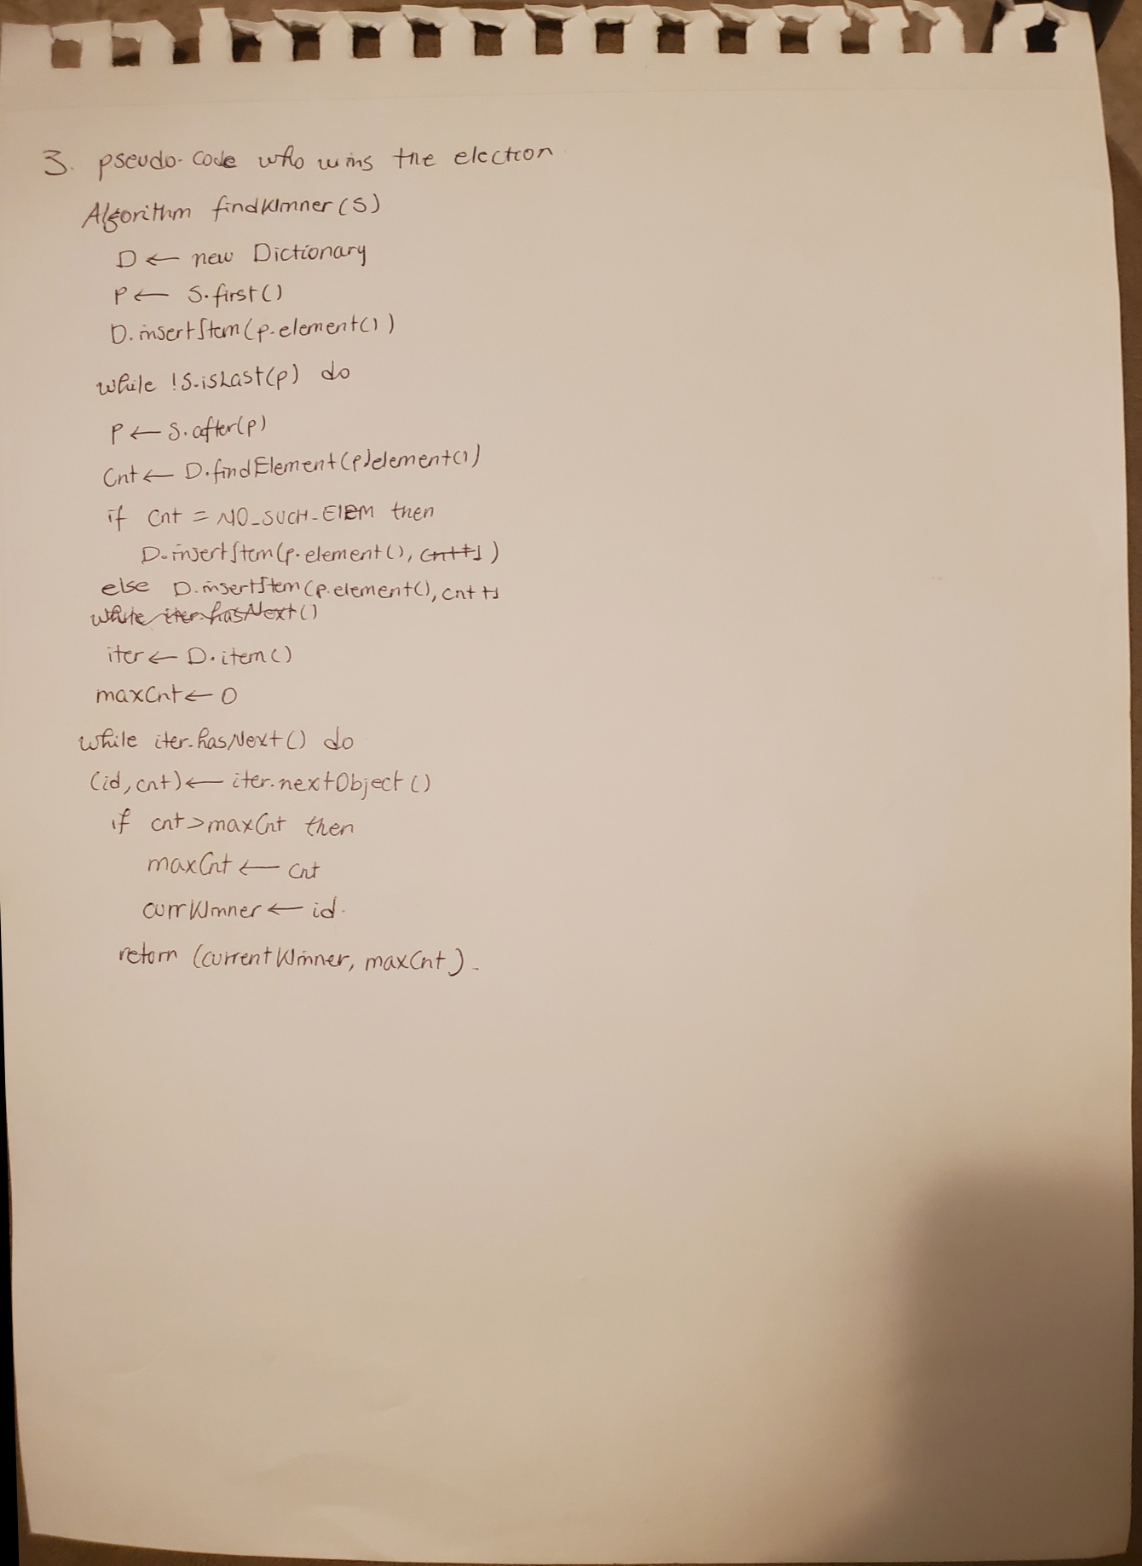 3. pseudo-code who wins the election
Algorithm findWinner(S)
D ← new Dictionary
P ← S.first()
D.insertItem(p.element())
while !S.isLast(p) do
P ← S.after(p)
Cnt ← D.findElement(p)element()
if Cnt = NO_SUCH_ElEM then
D.insertItem(p.element(), cnt+1)
else D.insertItem(p.element(), cnt+1
while iter.hasNext()
iter ← D.item()
maxCnt ← 0
while iter.hasNext() do
(id, cnt) ← iter.nextObject()
if cnt>maxCnt then
maxCnt ← cnt
currWinner ← id.
return (currentWinner, maxCnt).